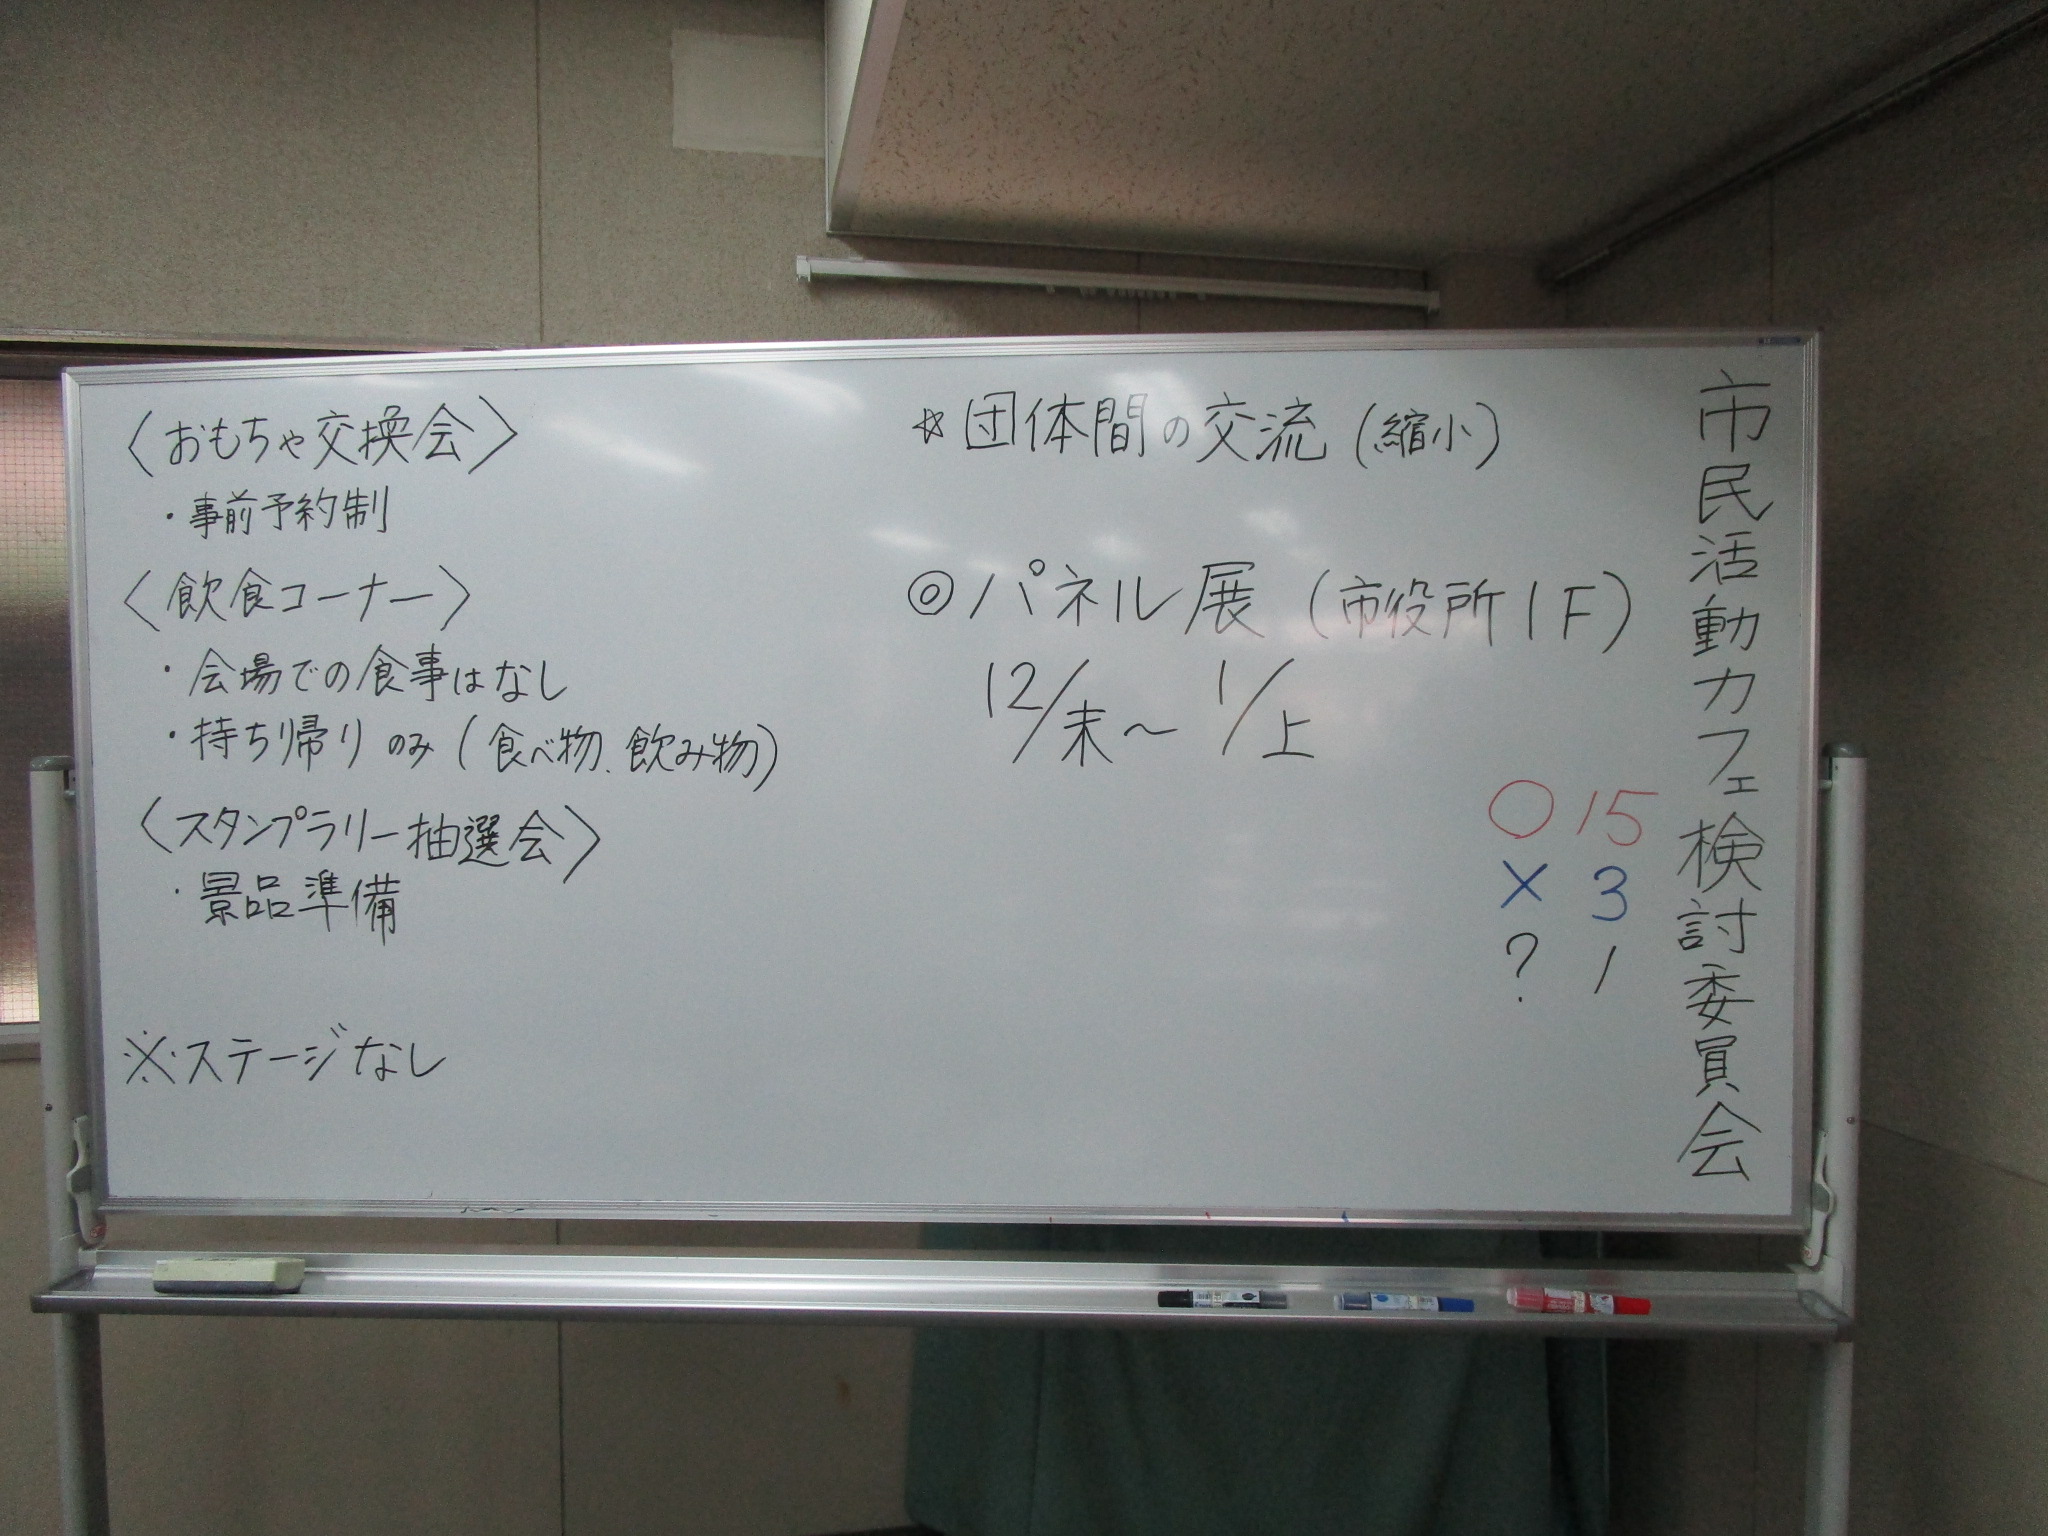 市民活動カフェ検討委員会
☆団体間の交流(縮小)
◎パネル展(市役所1F)
12/末~1/上
○ 15
× 3
? 1
〈おもちゃ交換会〉
・事前予約制
〈飲食コーナー〉
・会場での食事はなし
・持ち帰りのみ(食べ物、飲み物)
〈スタンプラリー抽選会〉
・景品準備
※ステージなし